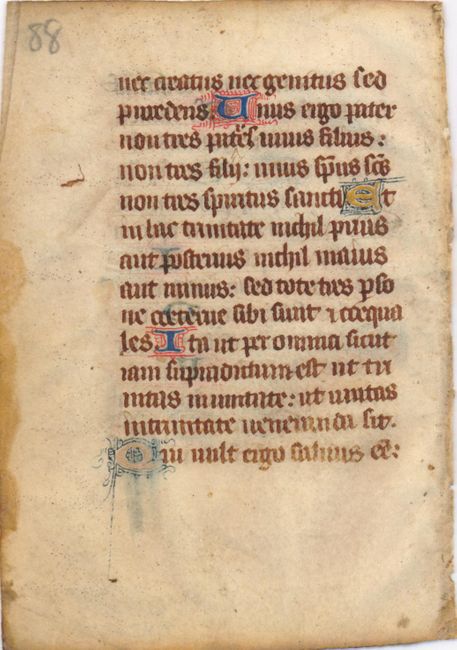 88
nec creatus nec genitus sed
procedens. Unus ergo pater
non tres pr̃es unus filius:
non tres filij: unus sp̃us sc̃s
non tres spiritus sancti Et
in hac trinitate nichil prius
aut posterius nichil maius
aut minus: sed tote tres pso
ne coeterne sibi sunt ⁊ coequa
les Ita ut per omnia sicut
iam supradictum est ut tri
nitas in unitate: ut unitas
in trinitate ueneranda sit.
Qui uult ergo saluus eẽ: